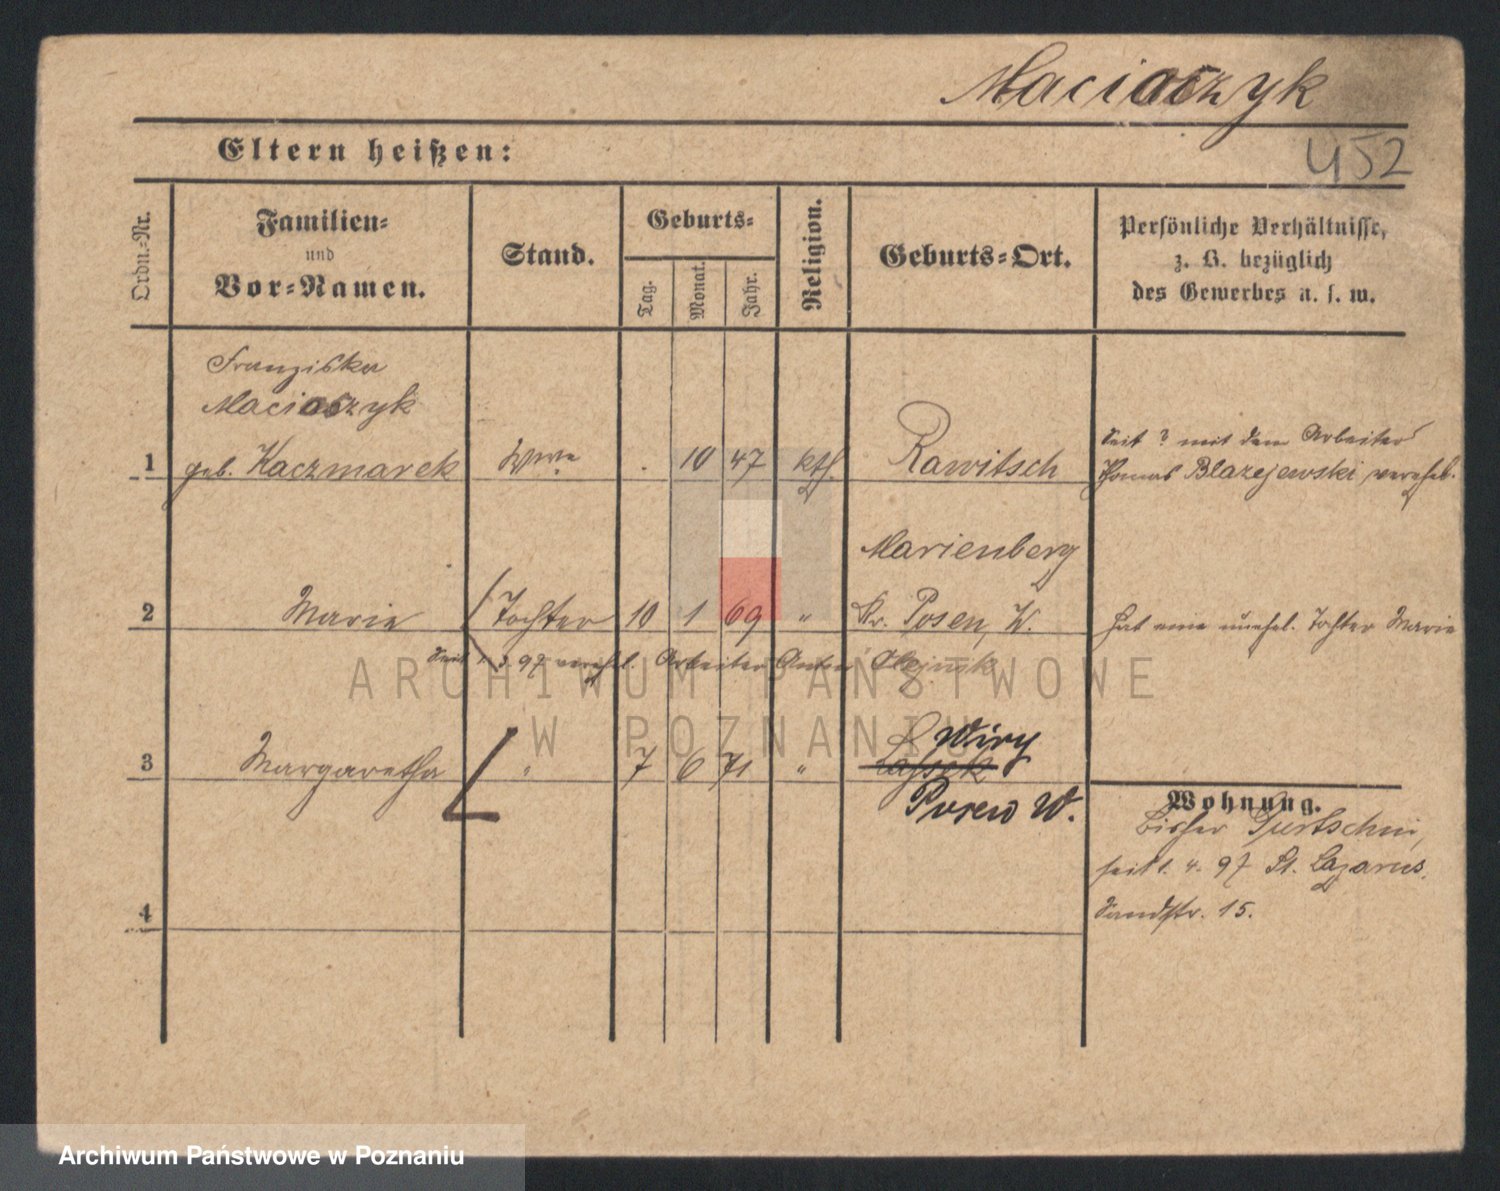 Maciaczyk
452
Eltern heißen:
Ordn.-Nr.
Familien-
und
Vor-Namen.
Stand.
Geburts-
Tag.
Monat.
Jahr.
Religion.
Geburts-Ort.
Persönliche Verhältnisse,
z. B. bezüglich
des Gewerbes u. s. w.
Franziska
Maciaczyk
1 geb. Kaczmarek Wwe . 10 47 kth. Rawitsch
Seit ? mit dem Arbeiter
Thomas Blazejewski verehel.
Marienberg
2 Marie Tochter 10 1 69 " Kr. Posen, W. hat eine unehel. Tochter Marie
Seit 97 verehl. Arbeiter Anton
ARCHIWUM PAŃSTWOWE
W POZNANIU
Wiry
3 Margaretha " 7 6 71 " Lassek
Posen W.
Wohnung.
bisher Gurtschin,
seit 1. 4. 97 St. Lazarus,
Sandstr. 15.
4
Archiwum Państwowe w Poznaniu